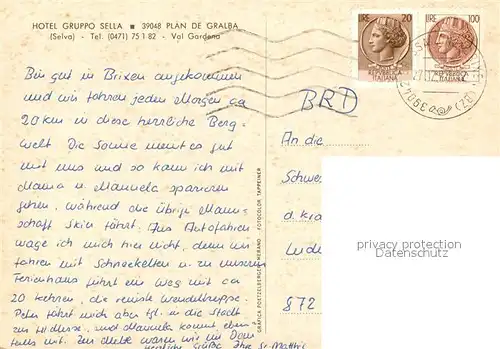 HOTEL GRUPPO SELLA ■ 39048 PLAN DE GRALBA
(Selva) - Tel. (0471) 75 1 82 - Val Gardena
LIRE 20
LIRE 100
REPUBBLICA ITALIANA
39042
Bin gut in Brixen angekommen
und wir fahren jeden Morgen ca
20 km in diese herrliche Berg-
Welt. Die Sonne meint es gut
mit uns und so kann ich mit
Mama u. Manuela spazieren
gehen, während die übrige Mann-
schaft Skiń fährt. Ans Autofahren
wage ich mich hier nicht, denn wir
fahren mit Schneeketten u. zu unserem
Ferienhaus führt ein Weg mit ca
20 Kehren, die reinste Wendeltreppe.
Peter fährt mich aber tgl. in die Stadt
zur Hl. Messe, und Manuela kommt eben-
falls mit. Zur Mette waren wir im Dom
Herzliche Grüße Ihre Sr.
BRD
An die
Schwe
d. Kra
872
GRAFICA POETZELBERGER MERANO - FOTOCOLOR TAPPEINER
privacy protection
Datenschutz